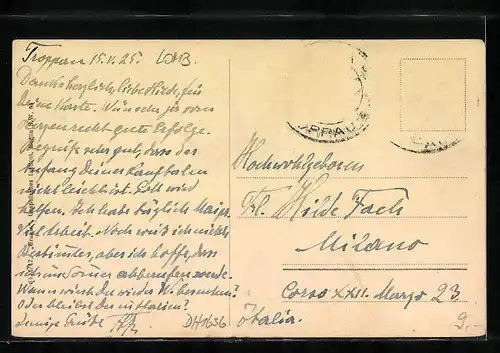 Troppau 15.V.25.
Danke herzlichst liebe Hilde, für
Deine Karte. Wünsche
Herzen recht gute Erfolge.
Begreife sehr gut, dass der
Anfang Deiner Laufbahn
nicht leicht ist. Gott wird
helfen. Ich habe täglich
viel Arbeit. Noch weiß ich nichts
Bestimmtes, aber ich hoffe, dass
ich im Sommer abberufen werde.
Wann wirst Du wieder W. besuchen?
Oder bleibst Du in Italien?
Innige Grüße
DH1656
OPPAU
Hochwohlgeboren
Frl. Hilde Fach
Milano
Corso XXII. Marzo 23.
Italia.
9.-